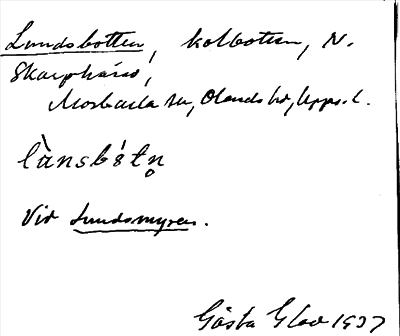 Lundsbotten, kolbotten, N.
Skarphäred,
Morkarla sn, Olands hd, Upps. l.
lànsbótn̥
Vid Lundsmyren.
Gösta Glad 1937